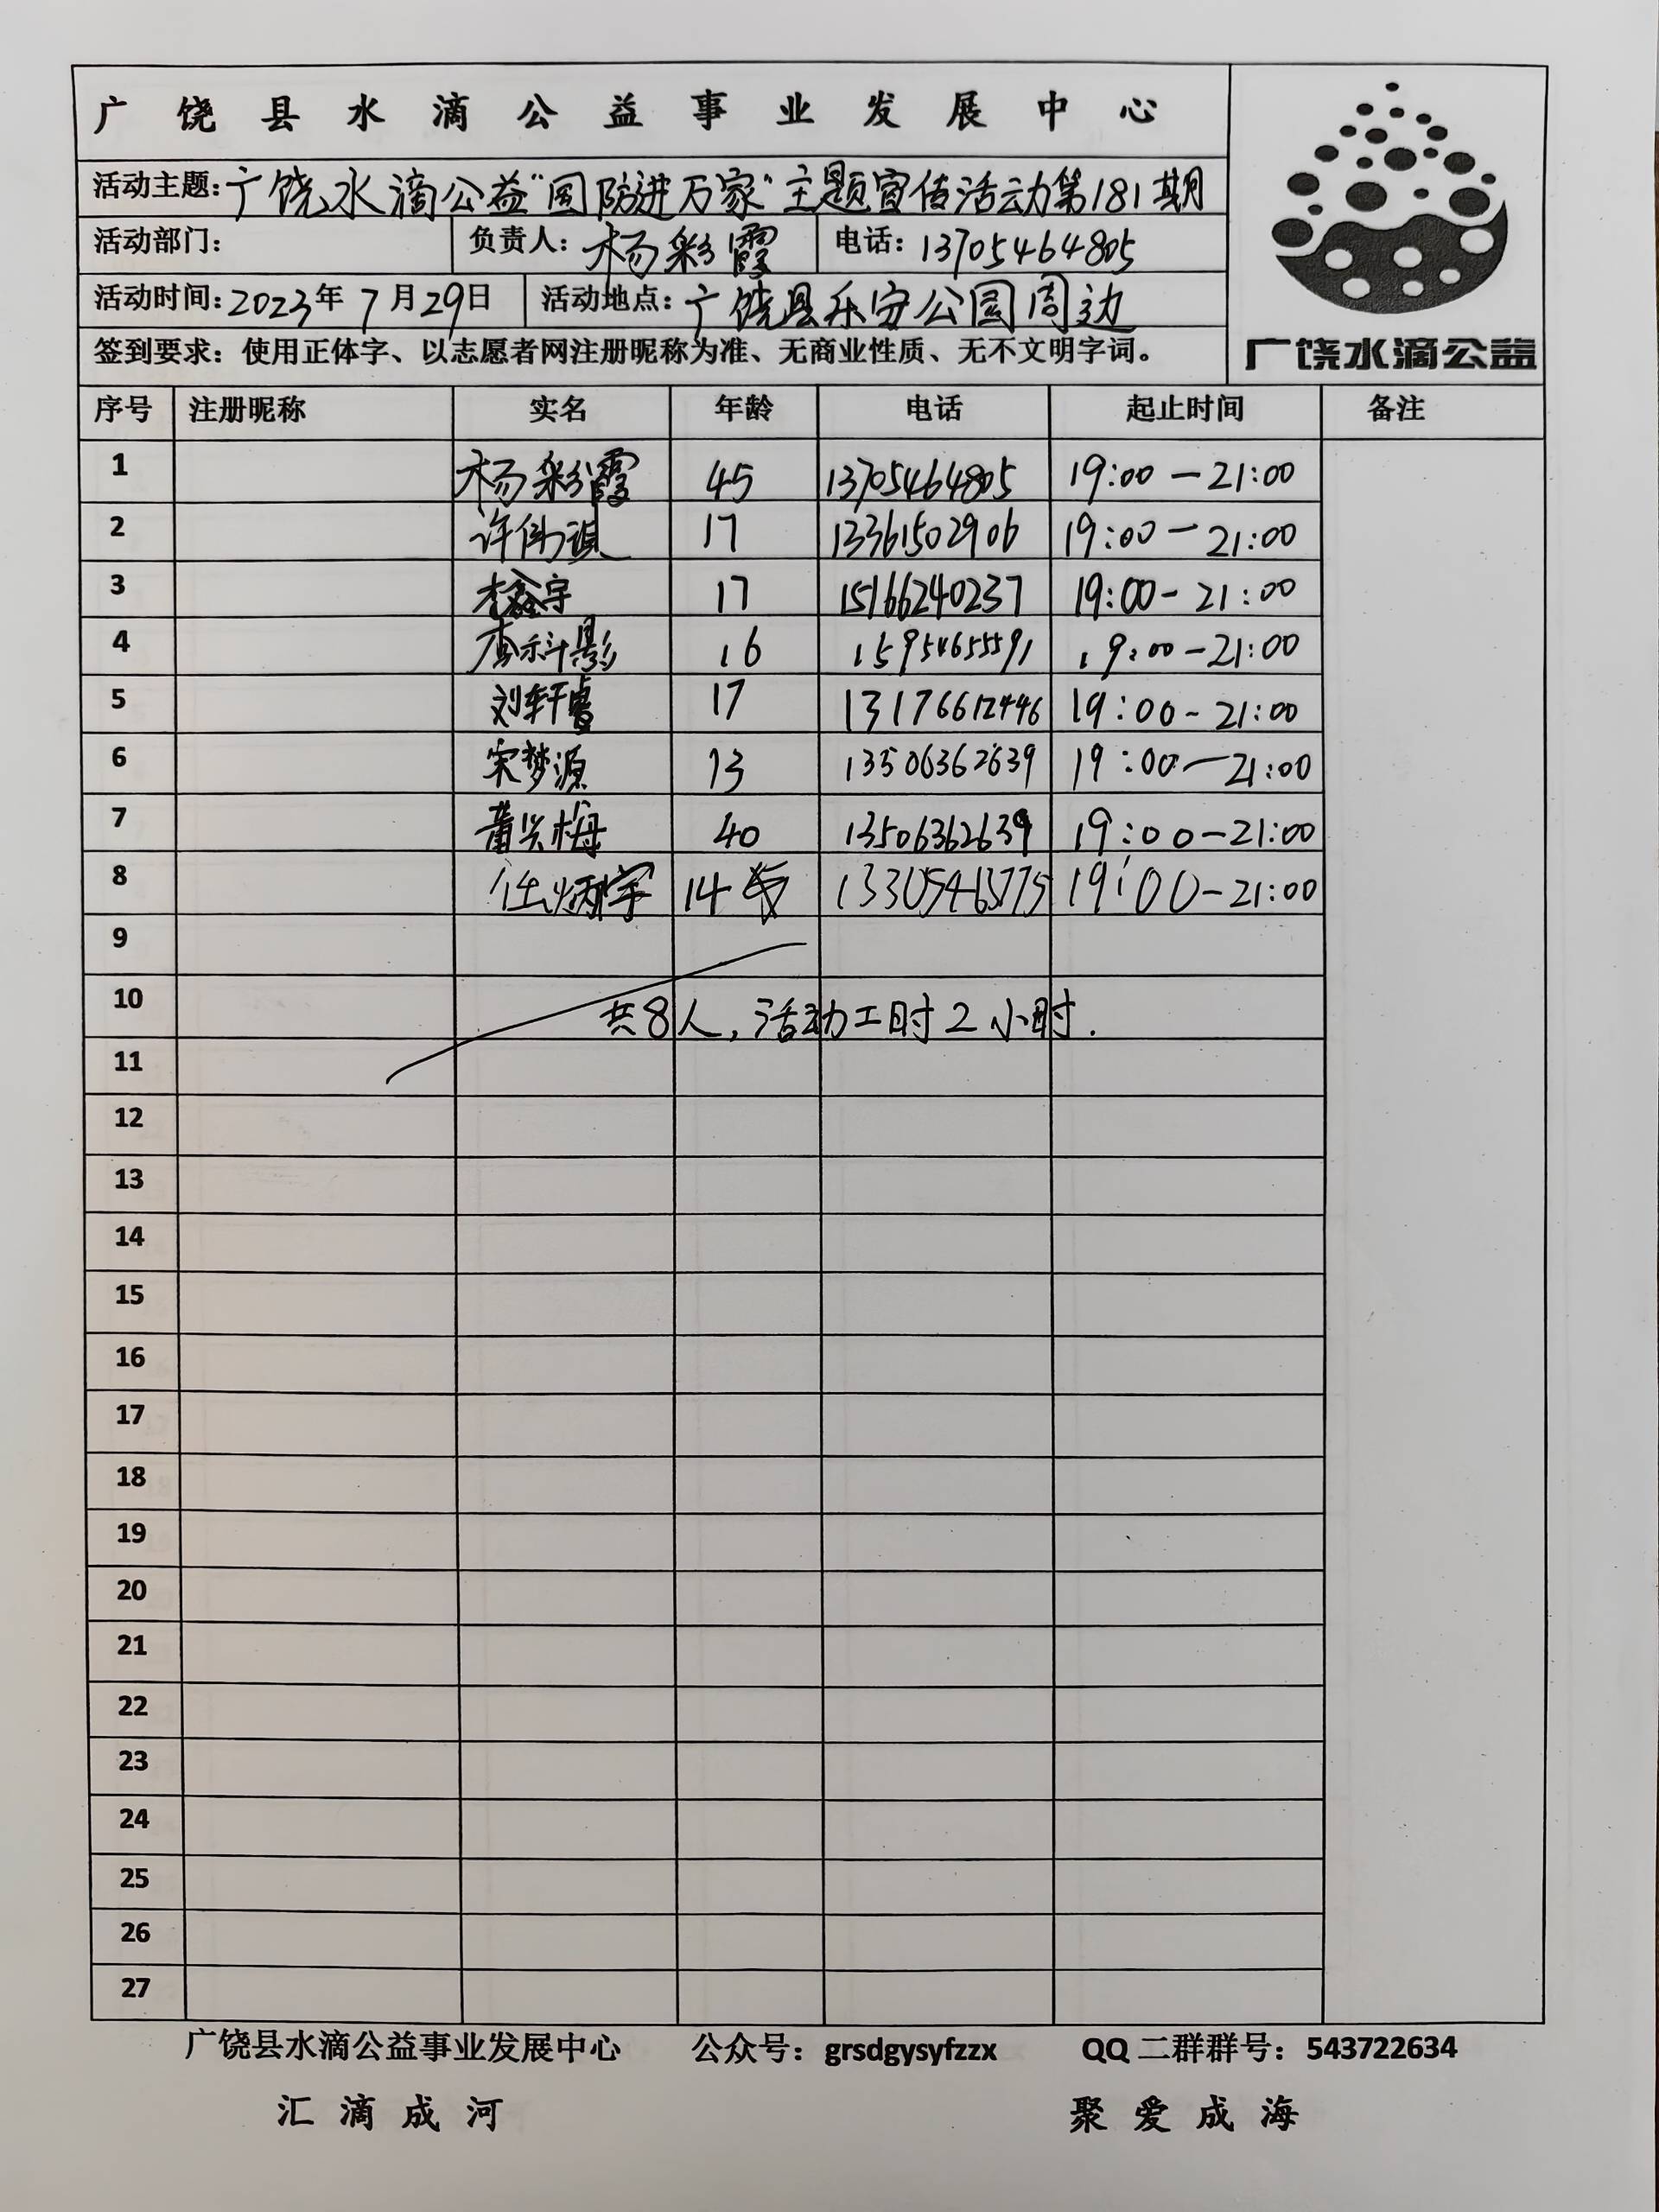 广饶县水滴公益事业发展中心
活动主题:广饶水滴公益"国防进万家"主题宣传活动第181期
活动部门: 负责人:杨彩霞 电话:13705464805
活动时间:2023年7月29日 活动地点:广饶县乐安公园周边
签到要求:使用正体字、以志愿者网注册昵称为准、无商业性质、无不文明字词。
广饶水滴公益
序号 注册昵称 实名 年龄 电话 起止时间 备注
1 杨彩霞 45 13705464805 19:00-21:00
2 许伟 17 13361502906 19:00-21:00
3 李鑫宇 17 15166240237 19:00-21:00
4 16 15954655591 19:00-21:00
5 刘轩 17 13176612446 19:00-21:00
6 宋梦源 13 13506362639 19:00-21:00
7 董兴梅 40 13506362639 19:00-21:00
8 任炳宇 14 19:00-21:00
9
10 共8人,活动工时2小时.
11
12
13
14
15
16
17
18
19
20
21
22
23
24
25
26
27
广饶县水滴公益事业发展中心 公众号:grsdgysyfzzx QQ二群群号:543722634
汇滴成河 聚爱成海